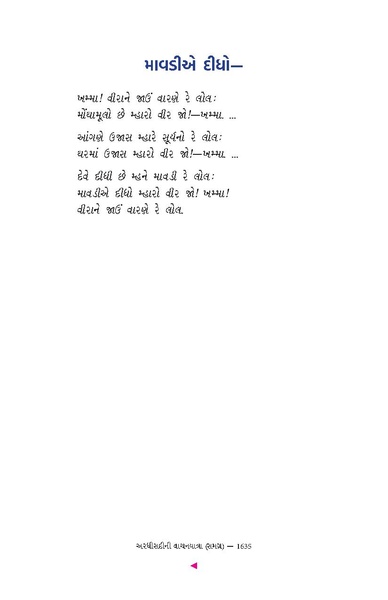 માવડીએ દીધો—
ખમ્મા! વીરાને જાઉં વારણે રે લોલઃ
મોંઘામૂલો છે મ્હારો વીર જો!—ખમ્મા. ...
આંગણે ઉજાસ મ્હારે સૂર્યનો રે લોલઃ
ઘરમાં ઉજાસ મ્હારો વીર જો!—ખમ્મા. ...
દેવે દીધી છે મ્હને માવડી રે લોલઃ
માવડીએ દીધો મ્હારો વીર જો! ખમ્મા!
વીરાને જાઉં વારણે રે લોલ.
અરધીસદીની વાચનયાત્રા (સમગ્ર) — 1635